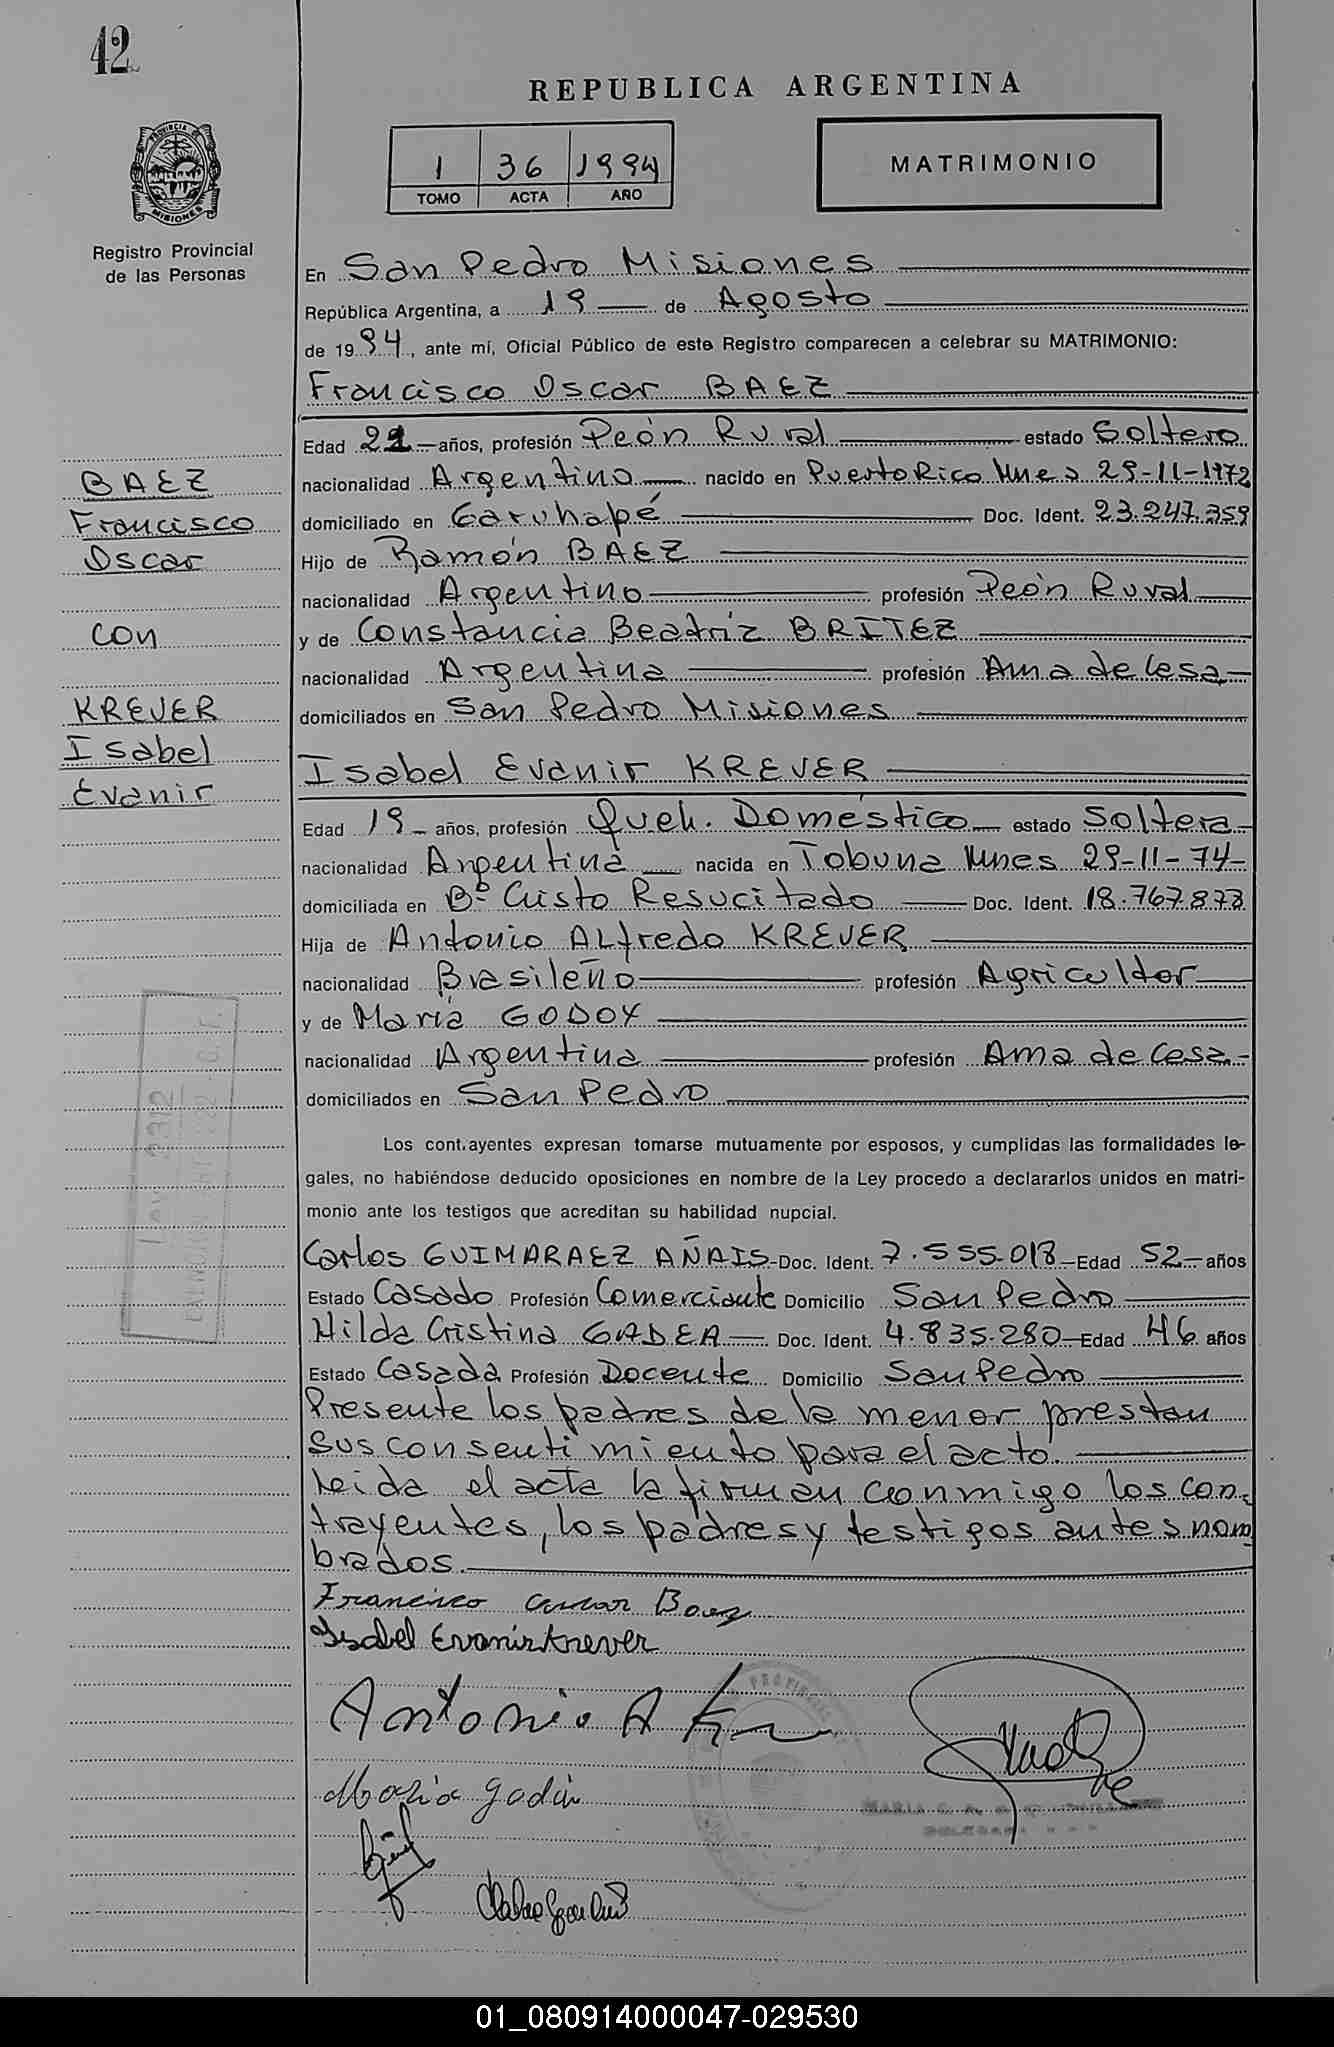 42
REPUBLICA ARGENTINA
1 36 1994
TOMO ACTA AÑO
MATRIMONIO
PROVINCIA DE
MISIONES
Registro Provincial
de las Personas
En San Pedro Misiones
República Argentina, a 19 de Agosto
de 1994, ante mí, Oficial Público de este Registro comparecen a celebrar su MATRIMONIO:
Francisco Oscar BAEZ
Edad 21 años, profesión Peón Rural estado Soltero
BAEZ
Francisco
Oscar
con
KREVER
Isabel
Evanir
nacionalidad Argentino nacido en Puerto Rico Mnes 29-11-1972
domiciliado en Garuhapé Doc. Ident. 23.247.359
Hijo de Ramón BAEZ
nacionalidad Argentino profesión Peón Rural
y de Constancia Beatriz BRITEZ
nacionalidad Argentina profesión Ama de Casa
domiciliados en San Pedro Misiones
Isabel Evanir KREVER
Edad 19 años, profesión Queh. Doméstico estado Soltera
nacionalidad Argentina nacida en Tobuna Mnes 29-11-74
domiciliada en Bº Cristo Resucitado Doc. Ident. 18.767.873
Hija de Antonio Alfredo KREVER
nacionalidad Brasileño profesión Agricultor
y de María GODOY
nacionalidad Argentina profesión Ama de Casa
domiciliados en San Pedro
Los cont.ayentes expresan tomarse mutuamente por esposos, y cumplidas las formalidades le-
gales, no habiéndose deducido oposiciones en nombre de la Ley procedo a declararlos unidos en matri-
monio ante los testigos que acreditan su habilidad nupcial.
Carlos GUIMARAEZ AÑAIS Doc. Ident. 7.555.018 Edad 52 años
Estado Casado Profesión Comerciante Domicilio San Pedro
Hilda Cristina GADEA Doc. Ident. 4.835.280 Edad 46 años
Estado Casada Profesión Docente Domicilio San Pedro
Presente los padres de la menor prestan
sus consentimiento para el acto.
Leida el acta la firman conmigo los con-
trayentes, los padres y testigos antes nom
brados.
Francisco Oscar Baez
Isabel Evanir Krever
Antonio A
Maria
Ley 2312
01_080914000047-029530